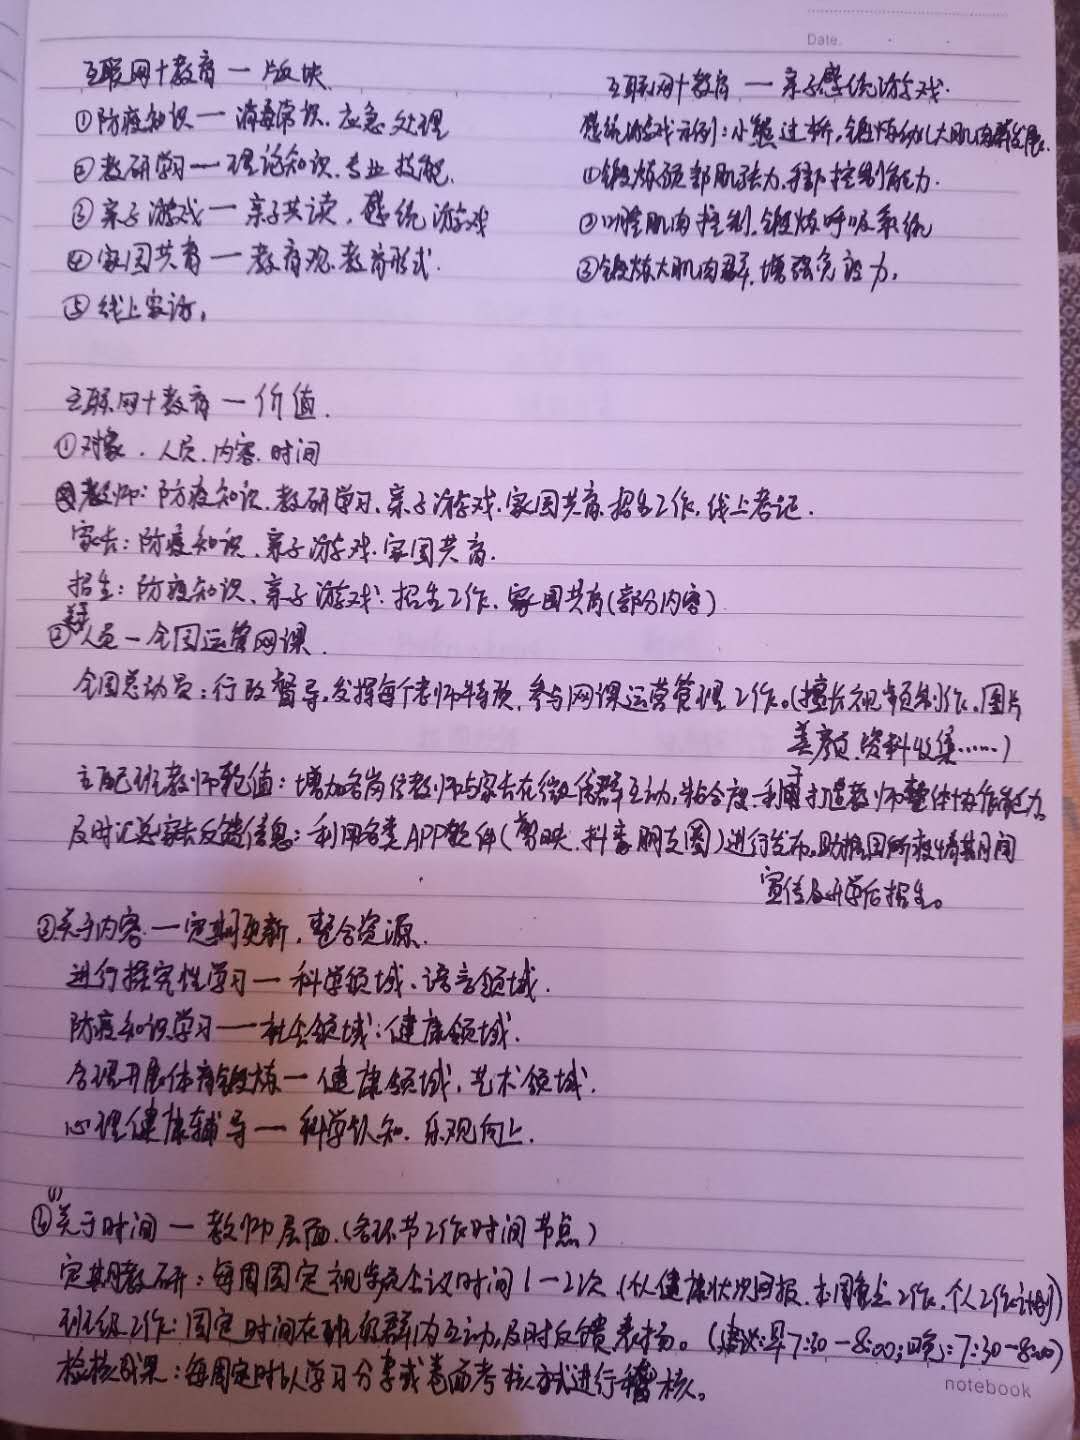 Date.
互联网+教育一版块
①防疫知识一消毒常识、应急处理
②教研学习一理论知识、专业技能.
③亲子游戏一亲子共读、感统游戏
④家园共育一教育观、教育形式.
⑤线上家访。
互联网+教育一亲子感统游戏.
感统游戏示例:小熊过桥,锻炼幼儿大肌肉群发展.
①锻炼颈部肌张力,手部控制能力.
②口腔肌肉控制,锻炼呼吸系统
③锻炼大肌肉群,增强免疫力.
互联网+教育一价值.
①对象.人员.内容.时间
教师:防疫知识、教研学习、亲子游戏、家园共育、招生工作,线上考记.
家长:防疫知识、亲子游戏.家园共育.
招生:防疫知识、亲子游戏.招生工作、家园共育(部分内容)
②关于人员一全园运营网课.
全园总动员:行政督导,发挥每个老师特质,参与网课运营管理工作。(擅长视频制作、图片
美颜、资料收集……)
主配班教师轮值:增加各岗位教师与家长在微信群互动,粘合度.利于打造教师整体协作能力。
及时汇总家长反馈信息:利用各类APP软件(剪映、抖音、朋友圈)进行发布,助推园所疫情期间
宣传及开学后招生。
③关于内容一定期更新,整合资源.
进行探究性学习一科学领域、语言领域.
防疫知识学习一社会领域;健康领域.
合理开展体育锻炼一健康领域,艺术领域.
心理健康辅导一科学认知、乐观向上.
④(1)关于时间一教师层面.(各环节工作时间节点)
定期教研:每周固定视频会议时间1一2次(个人健康状况回报、本周重点工作、个人工作计划)
班级工作:固定时间在班级群内互动,及时反馈,表扬。(建议:早7:30-8:00;晚:7:30-8:00)
检核成果:每周定时以学习分享或卷面考核方式进行稽核。
notebook